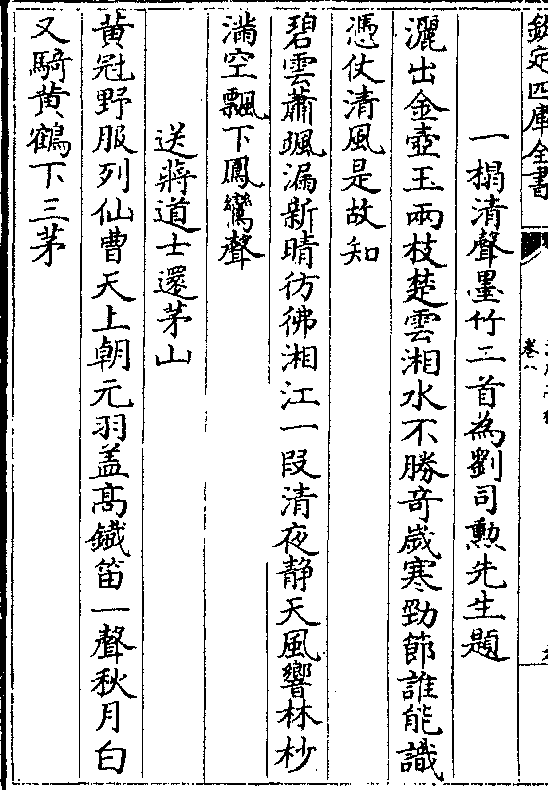 欽定四庫全書
卷八
一榻清聲墨竹二首為劉司勲先生題
灑出金壺玉兩枝楚雲湘水不勝竒嵗寒勁節誰能識
憑仗清風是故知
碧雲蕭颯漏新晴彷彿湘江一段清夜静天風響林杪
滿空飄下鳳鸞聲
送蔣道士還茅山
黄冠野服列仙曹天上朝元羽盖髙鐵笛一聲秋月白
又騎黄鶴下三茅